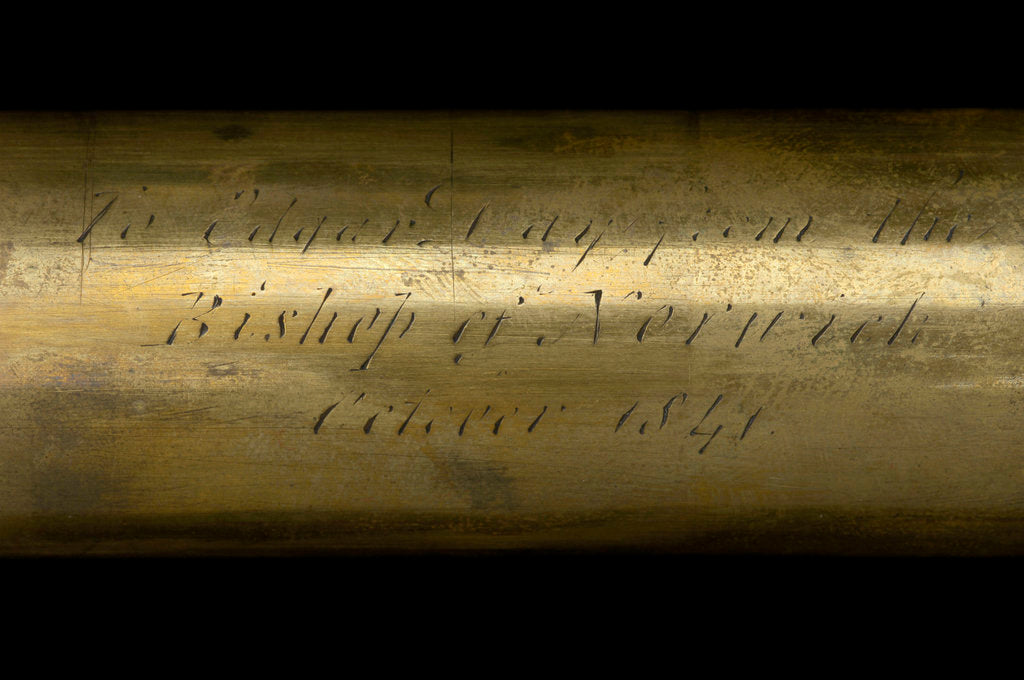 To Edgar from the
Bishop of Norwich
October 1841.